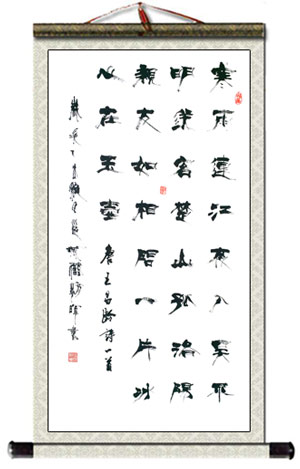 寒雨連江夜入吴平
明送客楚山孤洛陽
親友如相問一片冰
心在玉壺
唐王昌齡詩一首